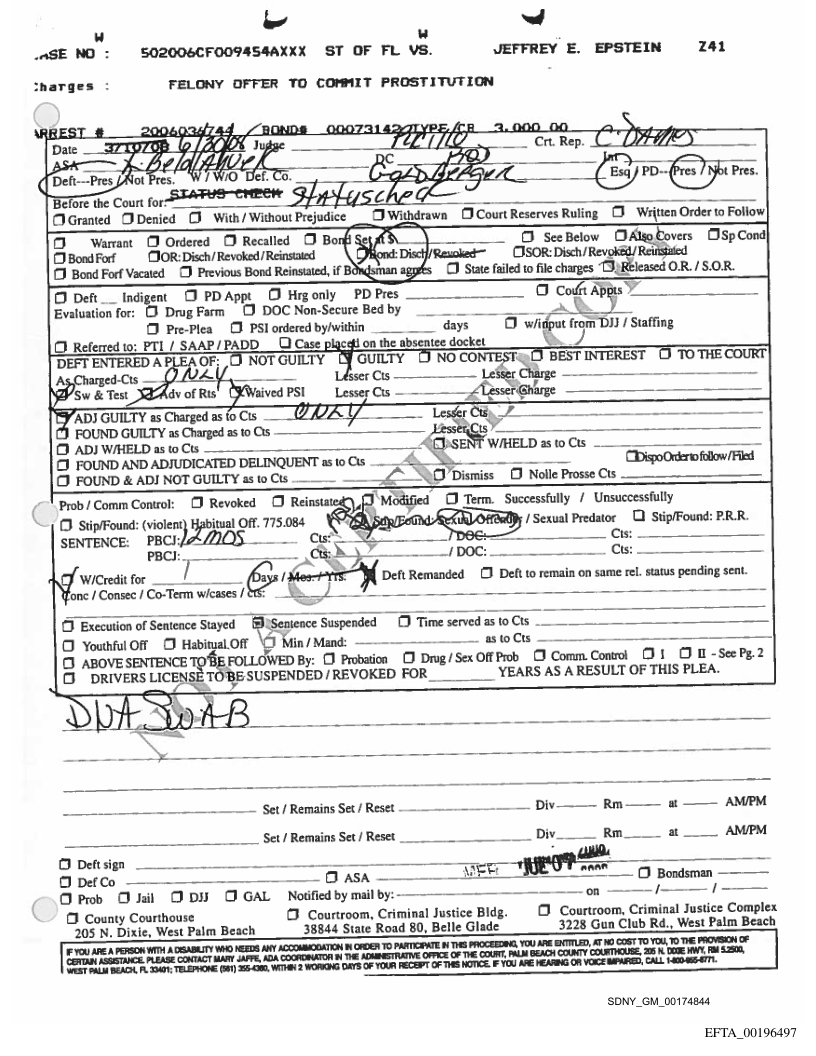 W W
ASE NO : 502006CF009454AXXX ST OF FL VS. JEFFREY E. EPSTEIN Z41
Charges : FELONY OFFER TO COMMIT PROSTITUTION
ARREST # 2006036744 BOND# 00073142 TYPE/CR 3,000.00
Date 6/30/08 Judge Crt. Rep.
ASA L. Belohlavek DC Int
Deft---Pres / Not Pres. W / W/O Def. Co. Goldberger Esq / PD--Pres / Not Pres.
Before the Court for: STATUS CHECK Status check
☐ Granted ☐ Denied ☐ With / Without Prejudice ☐ Withdrawn ☐ Court Reserves Ruling ☐ Written Order to Follow
☐ Warrant ☐ Ordered ☐ Recalled ☐ Bond Set at $ ☐ See Below ☐ Also Covers ☐ Sp Cond
☐ Bond Forf ☐ OR: Disch / Revoked / Reinstated ☐ Bond: Disch / Revoked ☐ SOR: Disch / Revoked / Reinstated
☐ Bond Forf Vacated ☐ Previous Bond Reinstated, if Bondsman agrees ☐ State failed to file charges ☐ Released O.R. / S.O.R.
☐ Deft __ Indigent ☐ PD Appt ☐ Hrg only PD Pres ☐ Court Appts
Evaluation for: ☐ Drug Farm ☐ DOC Non-Secure Bed by
☐ Pre-Plea ☐ PSI ordered by/within days ☐ w/input from DJJ / Staffing
☐ Referred to: PTI / SAAP / PADD ☐ Case placed on the absentee docket
DEFT ENTERED A PLEA OF: ☐ NOT GUILTY ☑ GUILTY ☐ NO CONTEST ☐ BEST INTEREST ☐ TO THE COURT
As Charged-Cts ONLY Lesser Cts Lesser Charge
☑ Sw & Test ☑ Adv of Rts ☑ Waived PSI Lesser Cts Lesser Charge
☑ ADJ GUILTY as Charged as to Cts ONLY Lesser Cts
☐ FOUND GUILTY as Charged as to Cts Lesser Cts
☐ ADJ W/HELD as to Cts ☐ SENT W/HELD as to Cts
☐ FOUND AND ADJUDICATED DELINQUENT as to Cts ☐ Dispo Order to follow / Filed
☐ FOUND & ADJ NOT GUILTY as to Cts ☐ Dismiss ☐ Nolle Prosse Cts
Prob / Comm Control: ☐ Revoked ☐ Reinstated ☐ Modified ☐ Term. Successfully / Unsuccessfully
☐ Stip/Found: (violent) Habitual Off. 775.084 ☑ Stip/Found: Sexual Offender / Sexual Predator ☐ Stip/Found: P.R.R.
SENTENCE: PBCJ: 12 MOS Cts: / DOC: Cts:
PBCJ: Cts: / DOC: Cts:
☑ W/Credit for 1 Days / Mos. / Yrs. ☑ Deft Remanded ☐ Deft to remain on same rel. status pending sent.
Conc / Consec / Co-Term w/cases / cts:
☐ Execution of Sentence Stayed ☐ Sentence Suspended ☐ Time served as to Cts
☐ Youthful Off ☐ Habitual Off ☐ Min / Mand: as to Cts
☐ ABOVE SENTENCE TO BE FOLLOWED By: ☐ Probation ☐ Drug / Sex Off Prob ☐ Comm. Control ☐ I ☐ II - See Pg. 2
☐ DRIVERS LICENSE TO BE SUSPENDED / REVOKED FOR YEARS AS A RESULT OF THIS PLEA.
NOT A CERTIFIED COPY
DNA SWAB
Set / Remains Set / Reset Div Rm at AM/PM
Set / Remains Set / Reset Div Rm at AM/PM
☐ Deft sign
☐ Def Co ☐ ASA ☐ Bondsman
☐ Prob ☐ Jail ☐ DJJ ☐ GAL Notified by mail by: on / /
☐ County Courthouse ☐ Courtroom, Criminal Justice Bldg. ☐ Courtroom, Criminal Justice Complex
205 N. Dixie, West Palm Beach 38844 State Road 80, Belle Glade 3228 Gun Club Rd., West Palm Beach
IF YOU ARE A PERSON WITH A DISABILITY WHO NEEDS ANY ACCOMMODATION IN ORDER TO PARTICIPATE IN THIS PROCEEDING, YOU ARE ENTITLED, AT NO COST TO YOU, TO THE PROVISION OF
CERTAIN ASSISTANCE. PLEASE CONTACT MARY JAFFE, ADA COORDINATOR IN THE ADMINISTRATIVE OFFICE OF THE COURT, PALM BEACH COUNTY COURTHOUSE, 205 N. DIXIE HWY, RM 5.2500,
WEST PALM BEACH, FL 33401; TELEPHONE (561) 355-4380, WITHIN 2 WORKING DAYS OF YOUR RECEIPT OF THIS NOTICE. IF YOU ARE HEARING OR VOICE IMPAIRED, CALL 1-800-955-8771.
SDNY_GM_00174844
EFTA_00196497